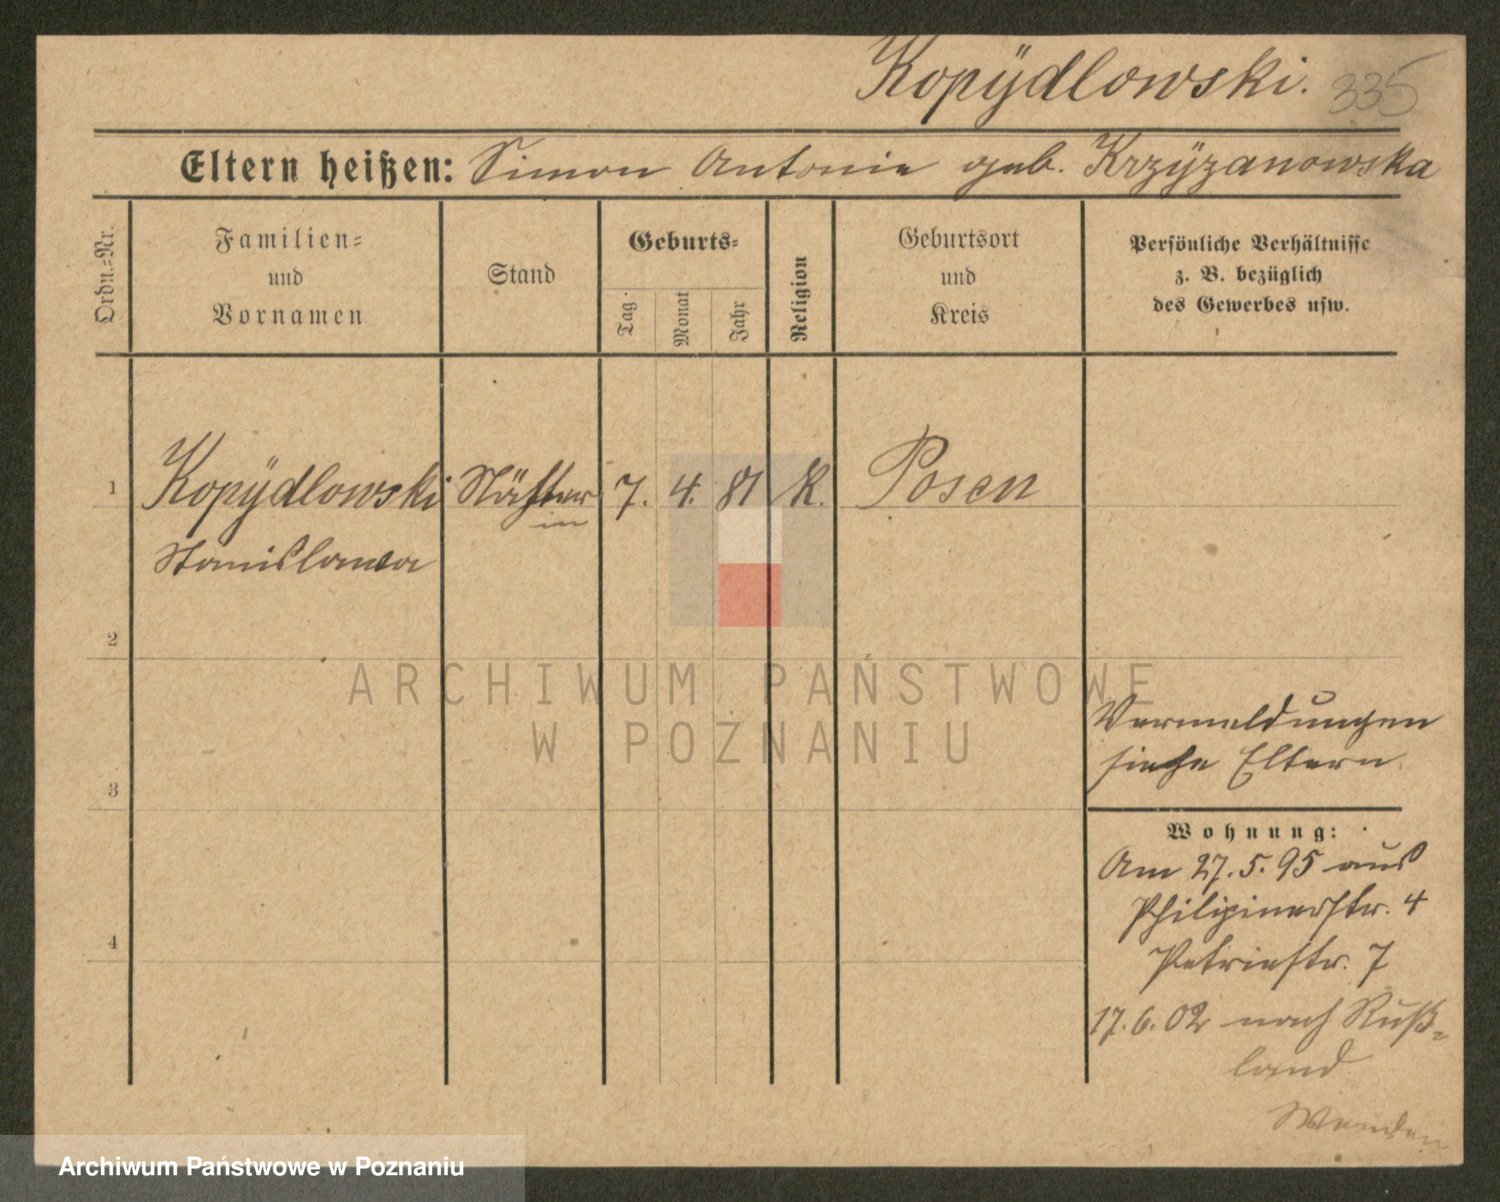 Kopÿdlowski. 335
Eltern heißen: Simon Antonie geb. Krzÿzanowska
Ordn.-Nr.
Familien-
und
Vornamen
Stand
Geburts-
Tag
Monat
Jahr
Religion
Geburtsort
und
Kreis
Persönliche Verhältnisse
z. B. bezüglich
des Gewerbes usw.
1 Kopÿdlowski Näherin 7. 4. 81 K. Posen
Stanislawa
2
ARCHIWUM PAŃSTWOWE
W POZNANIU
Vermeldungen
siehe Eltern
3
Wohnung:
Am 27.5.95 aus
Philipinerstr. 4
Petriestr. 7
4
17.6.02 nach Ruß-
land
Wenden
Archiwum Państwowe w Poznaniu